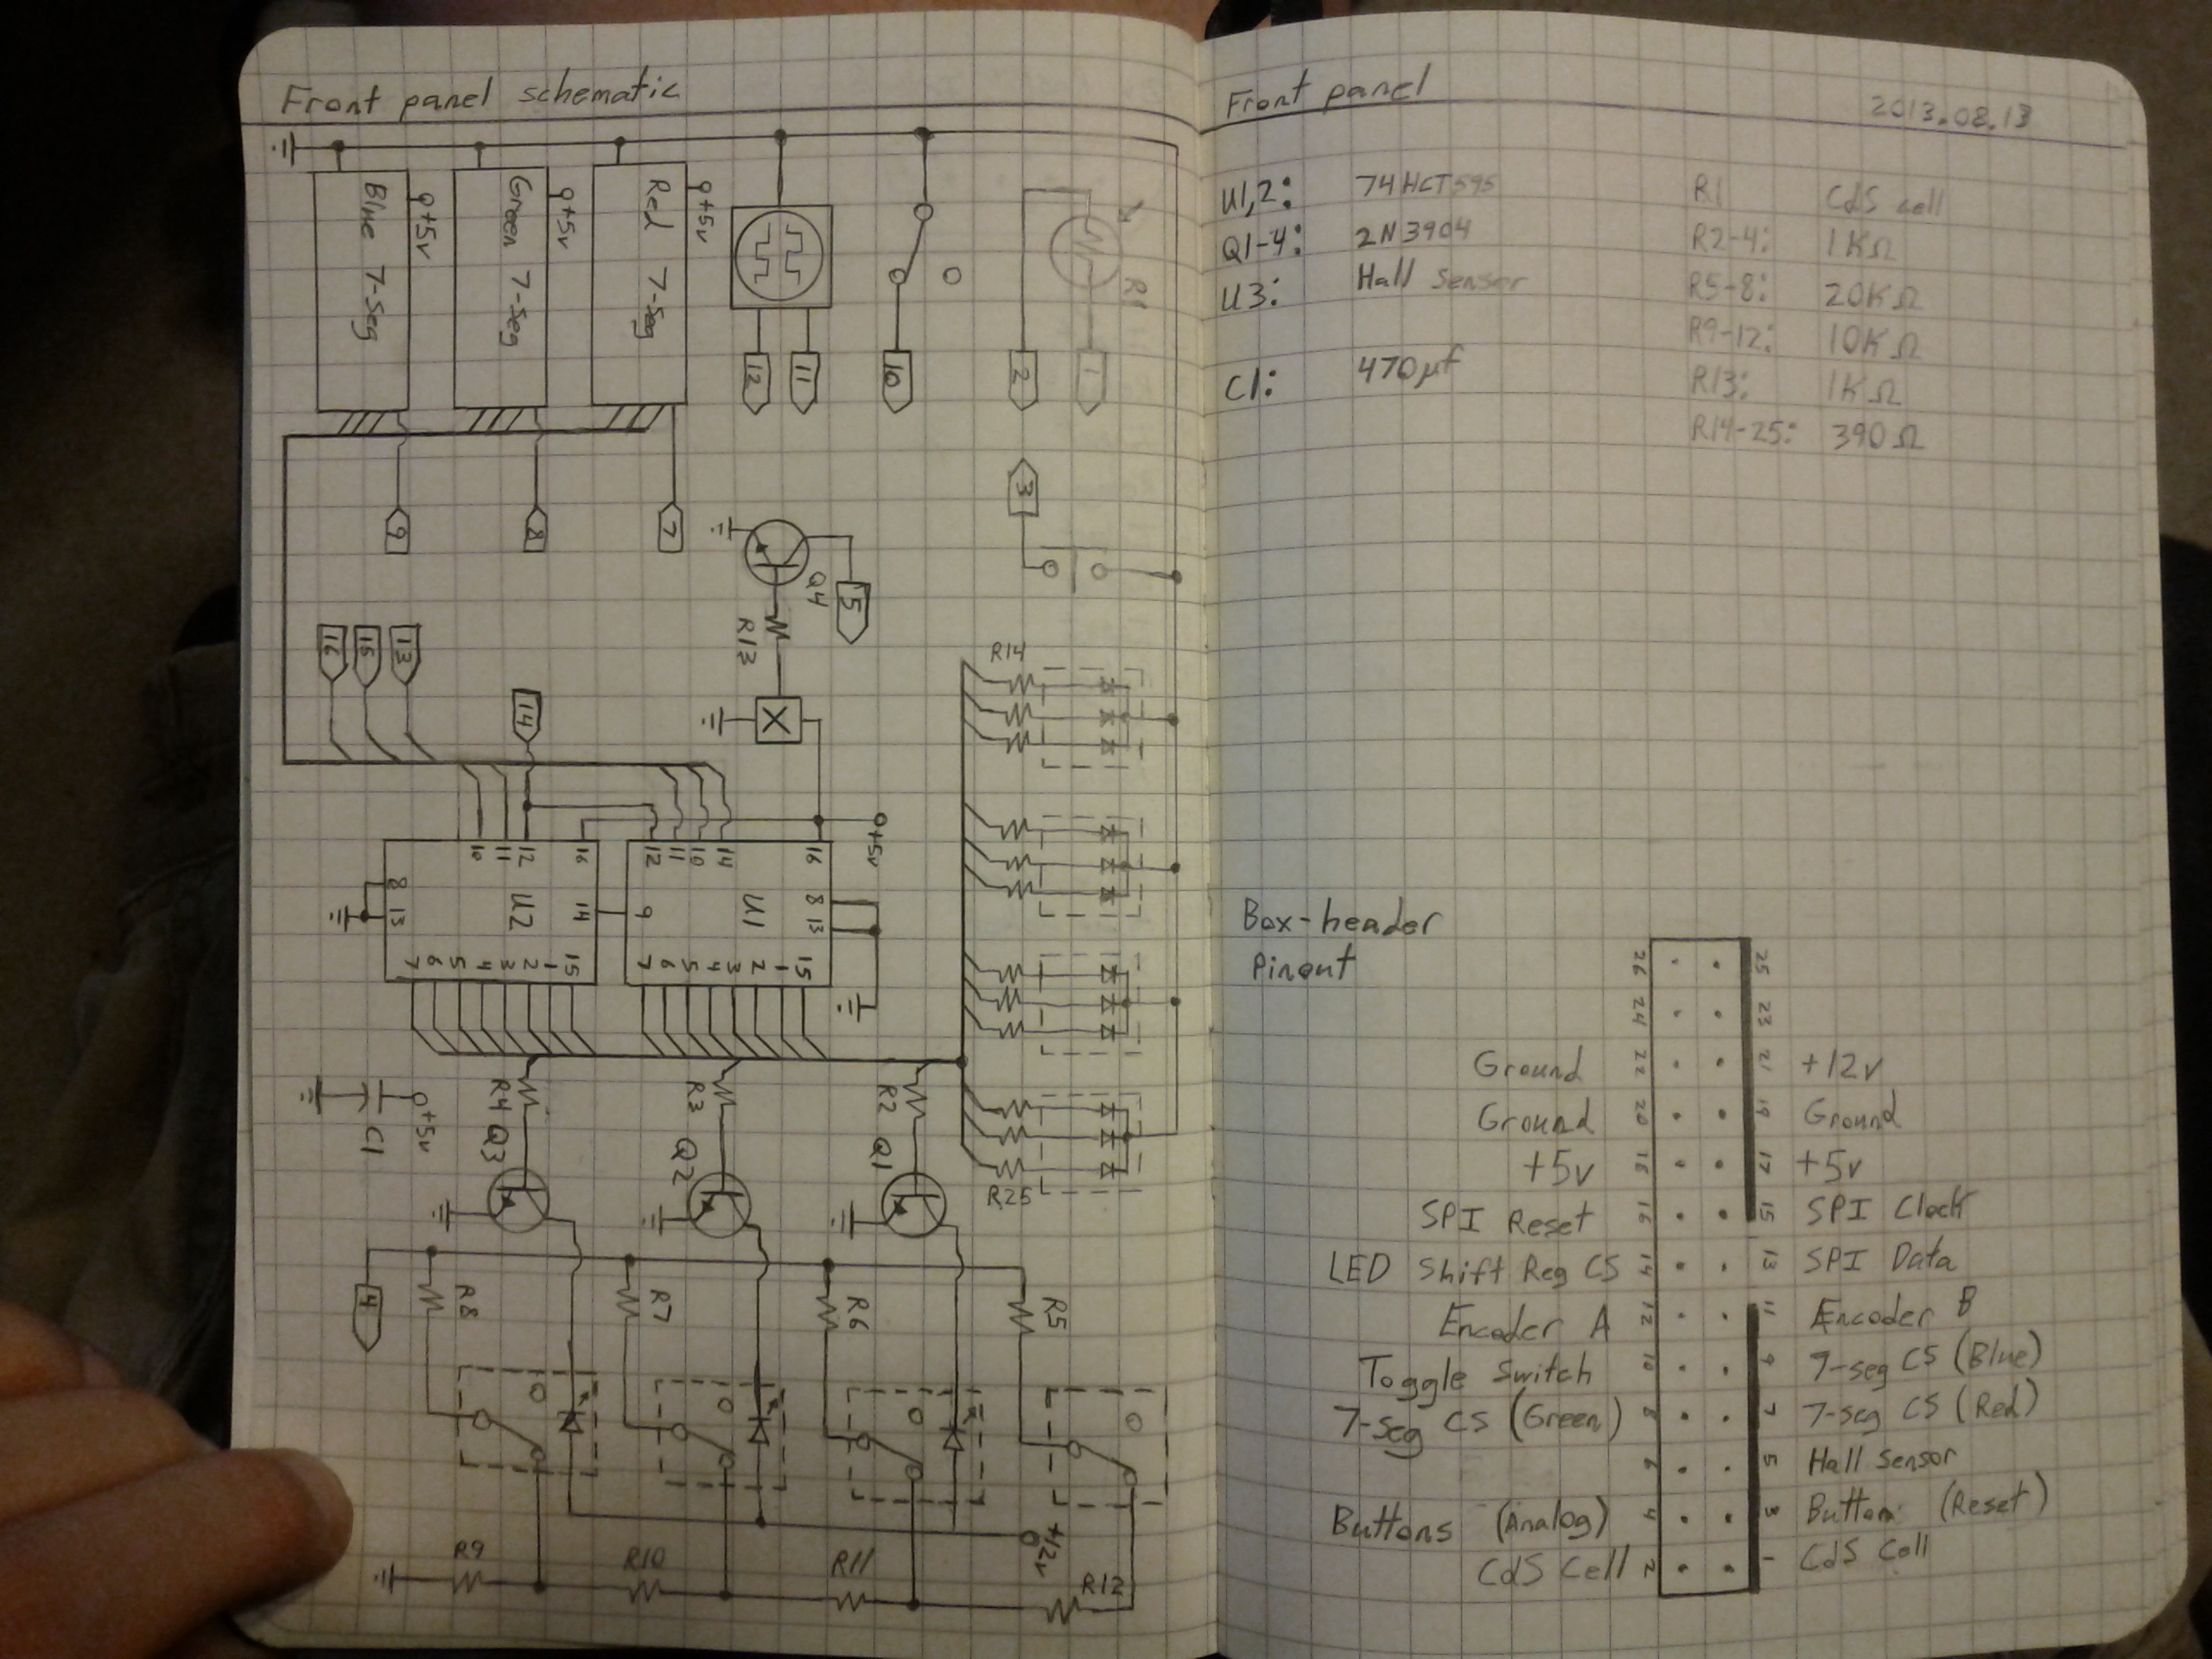 Front panel schematic
Blue 7-Seg
+5v
Green 7-Seg
+5v
Red 7-Seg
+5v
12
11
10
2
1
R1
3
9
8
7
Q4
5
R13
16
15
13
14
X
+5v
R14
10 11 12 16
U2
8
13
14
7 6 5 4 3 2 1 15
12 11 10 14 16
U1
9
8
13
7 6 5 4 3 2 1 15
C1
+5v
R4
Q3
R3
Q2
R2
Q1
R25
4
R8
R7
R6
R5
+12v
R9
R10
R11
R12
Front panel
2013.08.13
U1,2: 74HCT595
Q1-4: 2N3904
U3: Hall Sensor
C1: 470µf
R1 CdS cell
R2-4: 1KΩ
R5-8: 20KΩ
R9-12: 10KΩ
R13: 1KΩ
R14-25: 390Ω
Box-header
Pinout
26 25
24 23
Ground 22 21 +12v
Ground 20 19 Ground
+5v 18 17 +5v
SPI Reset 16 15 SPI Clock
LED Shift Reg CS 14 13 SPI Data
Encoder A 12 11 Encoder B
Toggle Switch 10 9 7-seg CS (Blue)
7-seg CS (Green) 8 7 7-seg CS (Red)
6 5 Hall sensor
Buttons (Analog) 4 3 Button (Reset)
CdS Cell 2 1 CdS Cell